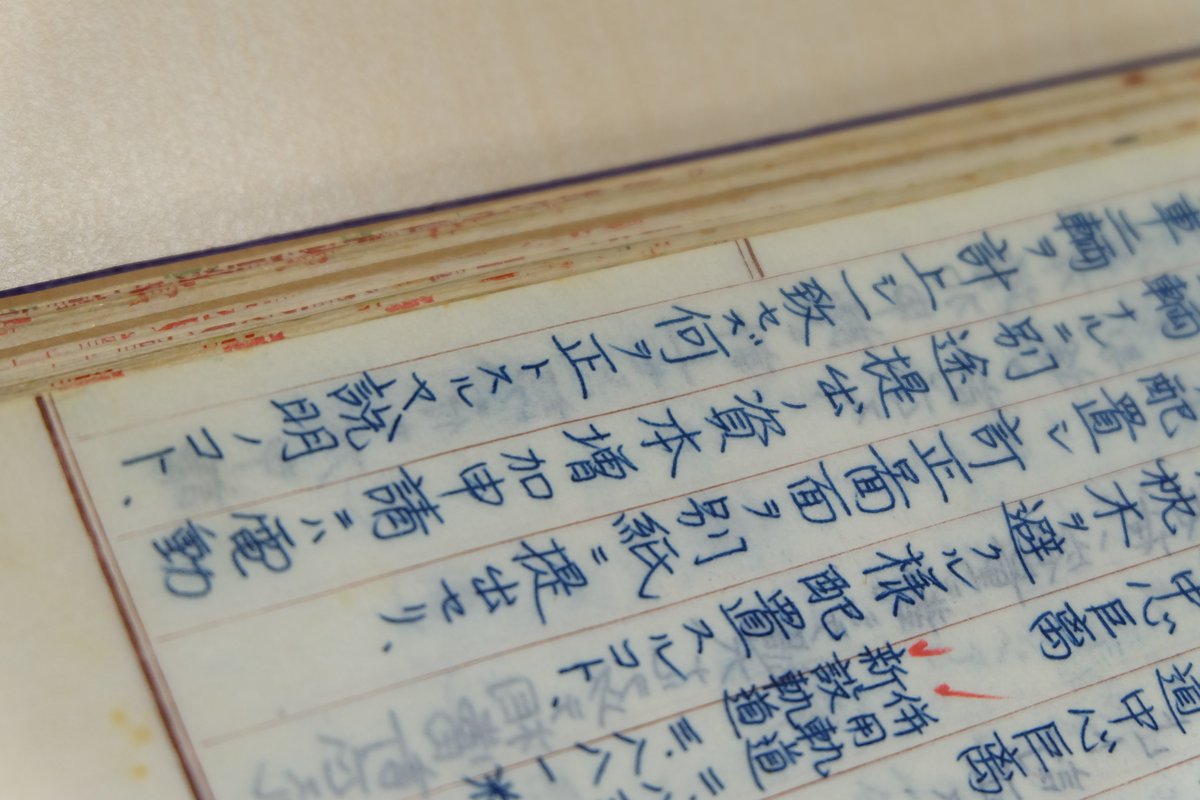 道中心距離
中心距離
併用軌道
新設軌道
枕木ヲ避クル様配置スルコト、
配置シ訂正圖面ヲ別紙ニ提出セリ、
輌ナルニ別途提出ノ資本増加申請ニハ電動
車三輌ヲ計上シ一致セズ何ヲ正トスルヤ説明ノコト、